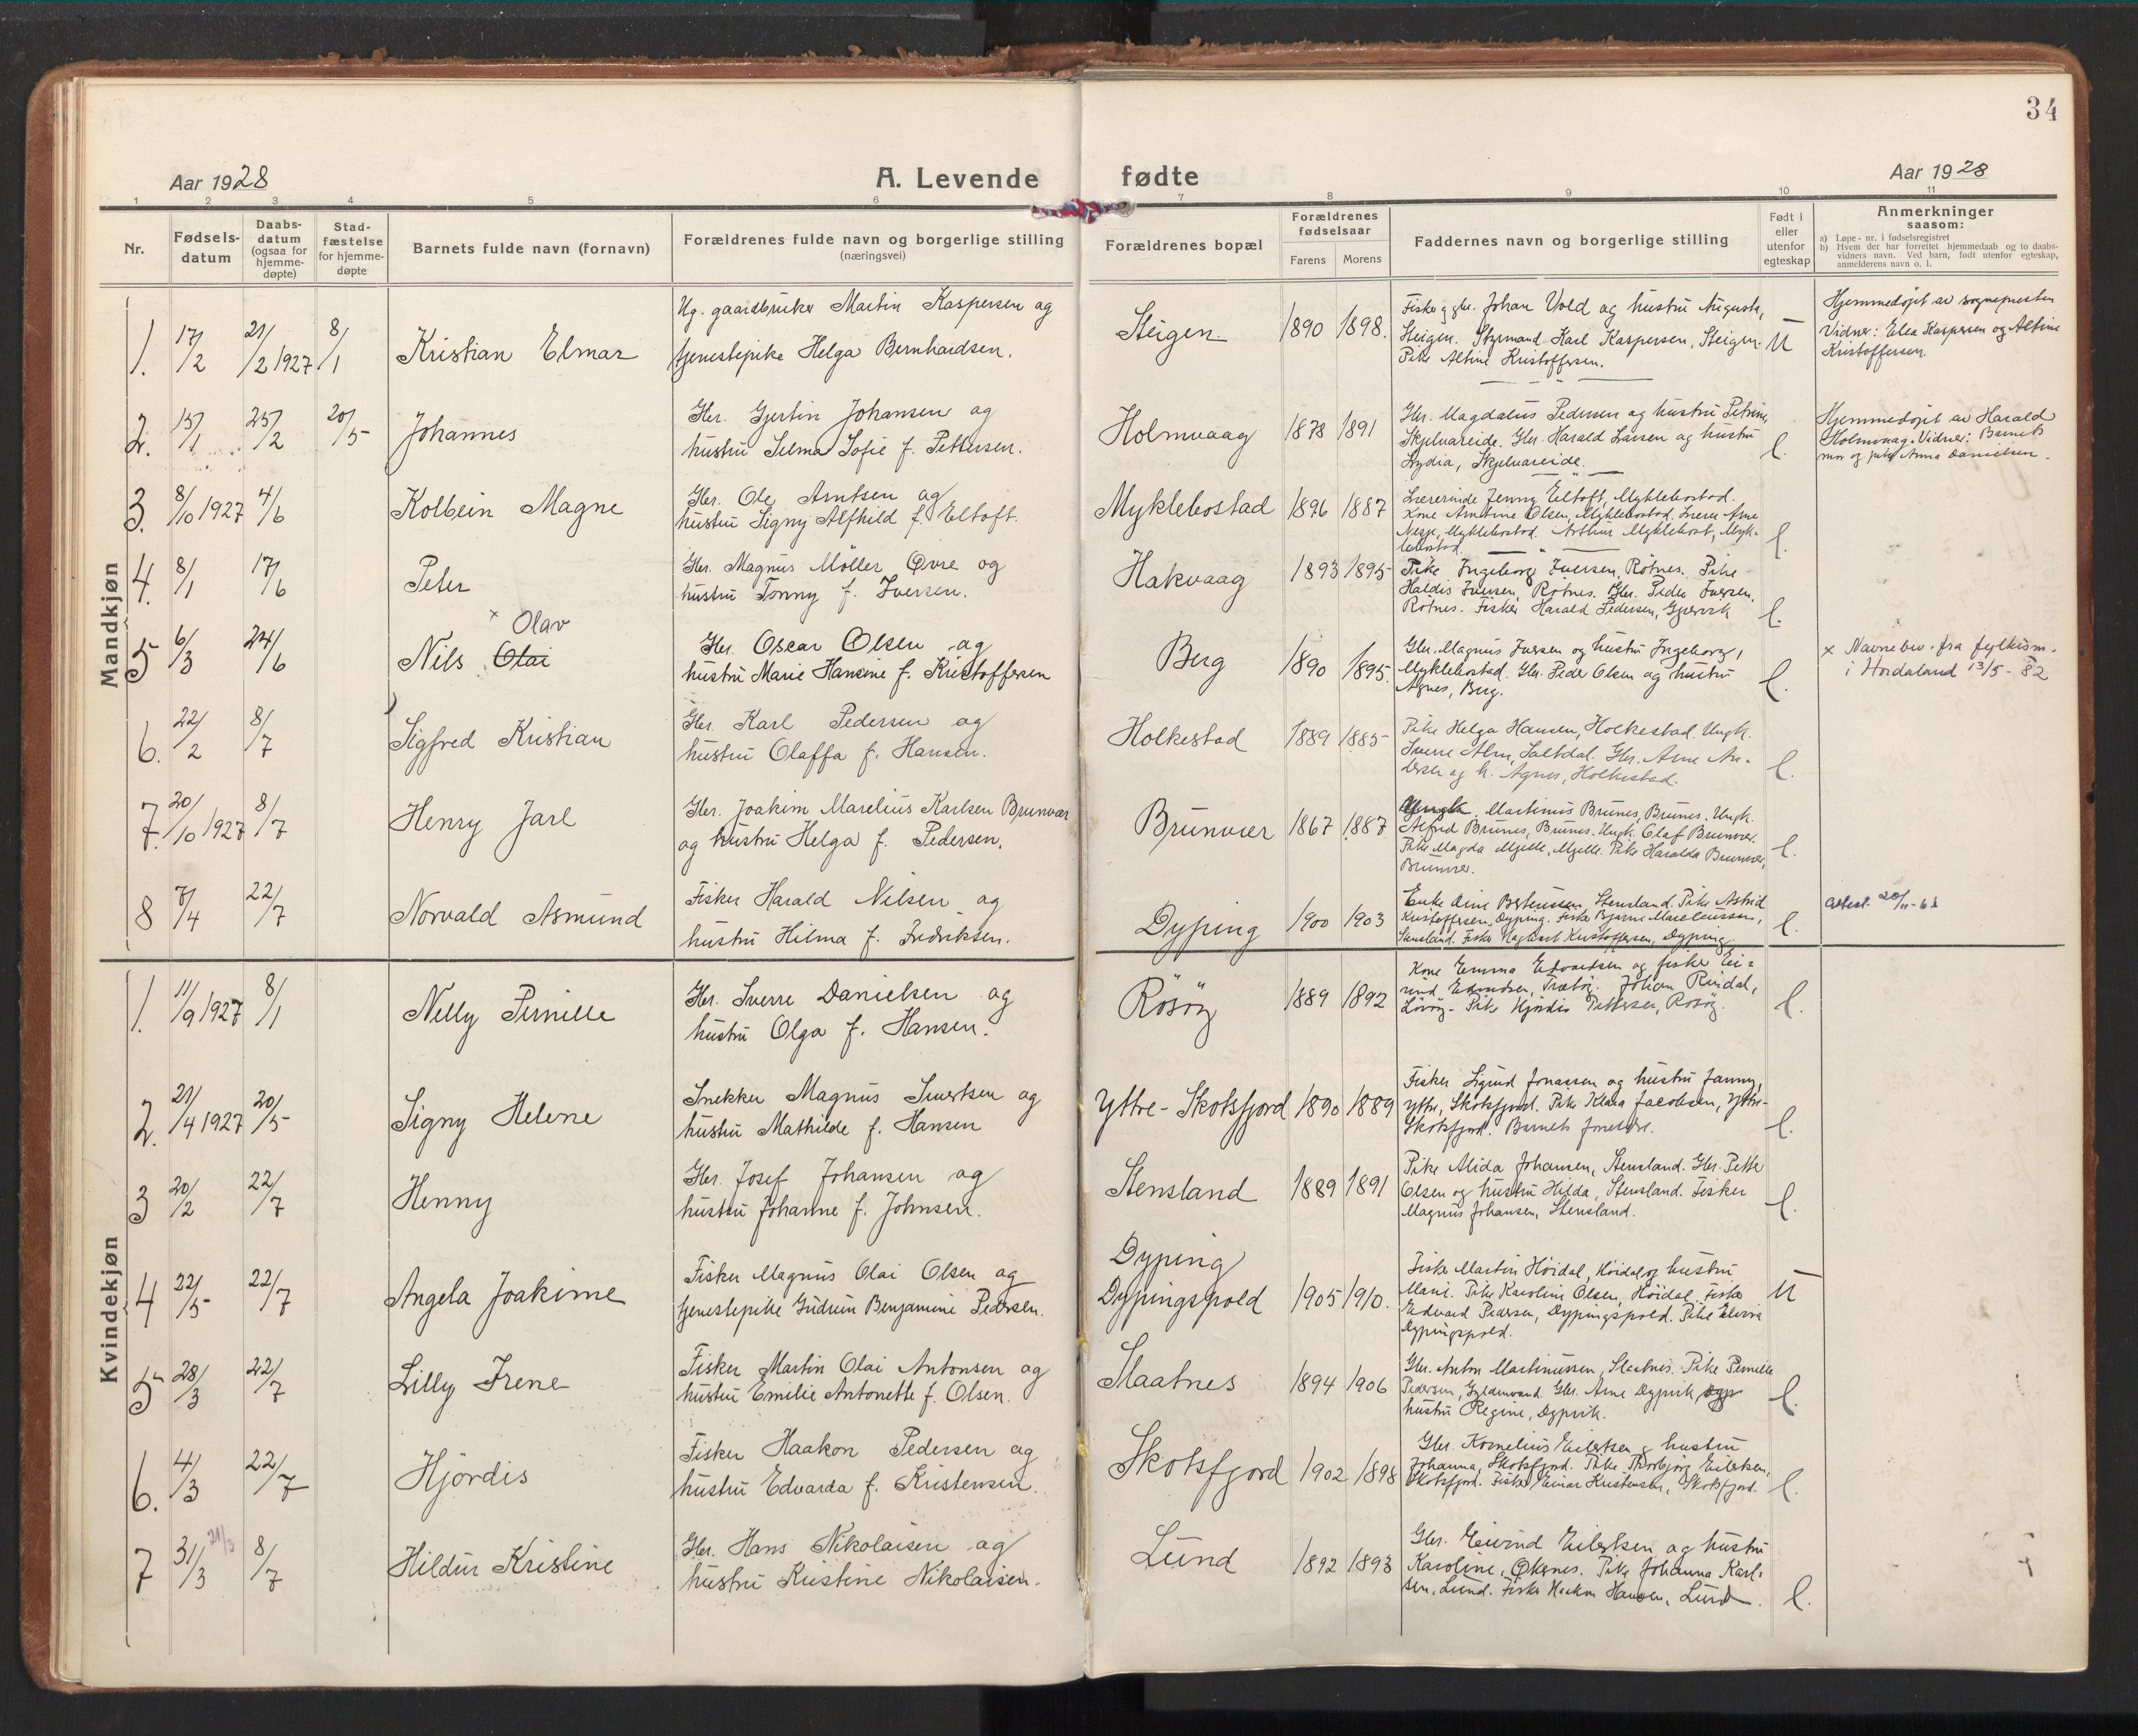 34
Aar 1928
A. Levende fødte
Aar 1928
1 2 3 4 5 6 7 8 9 10 11
Nr.
Fødsels-
datum
Daabs-
datum
(ogsaa for
hjemme-
døpte)
Stad-
fæstelse
for hjemme-
døpte
Barnets fulde navn (fornavn)
Forældrenes fulde navn og borgerlige stilling
(næringsvei)
Forældrenes bopæl
Forældrenes
fødselsaar
Farens Morens
Faddernes navn og borgerlige stilling
Født i
eller
utenfor
egteskap
Anmerkninger
saasom:
a) Løpe-nr. i fødselsregistret
b) Hvem der har forrettet hjemmedaab og to daabs-
vidners navn. Ved barn, født utenfor egteskap,
anmelderens navn o. l.
Mandkjøn
1. 17/2 21/2 1927 8/1 Kristian Elmar
Ug. gaardbruker Martin Kaspersen og
tjenestepike Helga Bernhardsen.
Steigen 1890 1898.
Fisker g gbr. Johan Vold og hustru Augusta,
Steigen. Styrmand Karl Kaspersen, Steigen.
Pike Altine Kristoffersen.
U
Hjemmedøpt av sognepresten
Vidner: Elea Kaspersen og Altine
Kristoffersen.
2. 15/1 25/2 20/5 Johannes
Gbr. Gjertin Johansen og
hustru Selma Sofie f. Pettersen.
Holmvaag 1878 1891
Gbr. Magdalus Pedersen og hustru Petrine,
Skjelvareide. Gbr. Harald Larsen og hustru
Lydia, Skjelvareide.
l.
Hjemmedøpt av Harald
Holmvaag. Vidner: Barnets
mor og pike Anna Danielsen.
3. 8/10 1927 4/6 Kolbein Magne
Gbr. Ole Arntsen og
hustru Signy Alfhild f. Eltoft.
Myklebostad 1896 1887
Lærerinde Jenny Eltoft, Myklebostad.
Kone Arntine Olsen, Myklebostad. Lærer Arne
Nesje, Myklebostad. Arthur Myklebost, Myk-
lebostad.
l.
4. 8/1 17/6 Peter
Gbr. Magnus Möller Øvre og
hustru Tonny f. Iversen.
Hakvaag 1893 1895
Pike Ingeborg Iversen, Rötnes. Pike
Haldis Iversen, Rötnes. Gbr. Peder Iversen,
Rötnes. Fisker Harald Pedersen, Gjervik
l.
5 6/3 24/6 Nils Olai × Olav
Gbr. Oscar Olsen og
hustru Marie Hansine f. Kristoffersen
Berg 1890 1895.
Gbr. Magnus Iversen og hustru Ingeborg,
Myklebostad. Gbr. Peder Olsen og hustru
Agnes, Berg.
l.
× Navnebev. fra fylkesm.
i Hordaland 13/5 - 82
6. 22/2 8/7 Sigfred Kristian
Gbr. Karl Pedersen og
hustru Olaffa f. Hansen.
Holkestad 1889 1885
Pike Helga Hansen, Holkestad. Ungk.
Sverre Alm, Saltdal. Gbr. Arne An-
dersen og h. Agnes, Holkestad.
l.
7. 20/10 1927 8/7 Henry Jarl
Gbr. Joakim Marelius Karlsen Brunvær
og hustru Helga f. Pedersen.
Brunvær 1867 1887
Ungk. Martinus Brunes, Brunes. Ungk.
Alfred Brunes, Brunes. Ungk. Olaf Brunvær.
Pike Magda Mjelle, Mjelle. Pike Haralda Brunvær,
Brunvær.
l.
8 7/4 22/7 Norvald Asmund
Fisker Harald Nilsen og
hustru Hilma f. Fredriksen.
Dyping 1900 1903
Enke Stensland. Pike Astrid
Kristoffersen, Dyping. Fisker Bjarne Marelinussen,
Stensland. Fisker Kristoffersen, Dyping.
l.
Attest. 20/11-61
Kvindekjøn
1. 11/9 1927 8/1 Nelly Pernille
Gbr. Sverre Danielsen og
hustru Olga f. Hansen.
Rösöy 1889 1892
Kone Emma Edvardsen og fisker Ei-
vind Edvardsen, Johan Rindal,
Lövöy. Pike Hjördis Pettersen, Rösöy.
l.
2. 21/4 1927 20/5 Signy Helene
Snekker Magnus Sivertsen og
hustru Mathilde f. Hansen
Yttre-Skotsfjord 1890 1889
Fisker Sigurd Jonassen og hustru Fanny,
Yttre, Skotsfjord. Pike Klara Jacobsen, Yttre-
Skotsfjord. Barnets foreldre.
l.
3 20/2 22/7 Henny
Gbr. Josef Johansen og
hustru Johanne f. Johnsen.
Stensland 1889 1891
Pike Alida Johansen, Stensland. Gbr. Petter
Olsen og hustru Hilda, Stensland. Fisker
Magnus Johansen, Stensland.
l.
4 22/5 22/7 Angela Joakime
Fisker Magnus Olai Olsen og
tjenestepike Gudrun Benjamine Pedersen.
Dyping
Dypingspold 1905 1910.
Fisker Martin Höidal, Höidal og hustru
Marie. Pike Karoline Olsen, Höidal. Fisker
Edvard Pedersen, Dypingspold. Pike Elvine
Dypingspold.
U
5 28/3 22/7 Lilly Irene
Fisker Martin Olai Antonsen og
hustru Emilie Antonette f. Olsen.
Slaatnes 1894 1906
Gbr. Anton Martinussen, Slaatnes. Pike Pernille
Pedersen, Gyldenvand. Gbr. Arne Dypvik,
hustru Regine, Dypvik.
l.
6. 4/3 22/7 Hjördis
Fisker Haakon Pedersen og
hustru Edvarda f. Kristensen.
Skotsfjord 1902 1898
Gbr. Kornelius Eilertsen g hustru
Johanna, Skotsfjord. Pike Thorbjörg Eilertsen,
Skotsfjord. Fisker Einar Kristensen, Skotsfjord.
l.
7 31/3 21/3 8/7 Hildur Kristine
Gbr. Hans Nikolaisen og
hustru Kristine Nikolaisen.
Lund 1892 1893
Gbr. Eivind Eilertsen og hustru
Karoline, Økernes. Pike Johanna Karl-
sen, Lund. Fisker Hansen, Lund.
l.